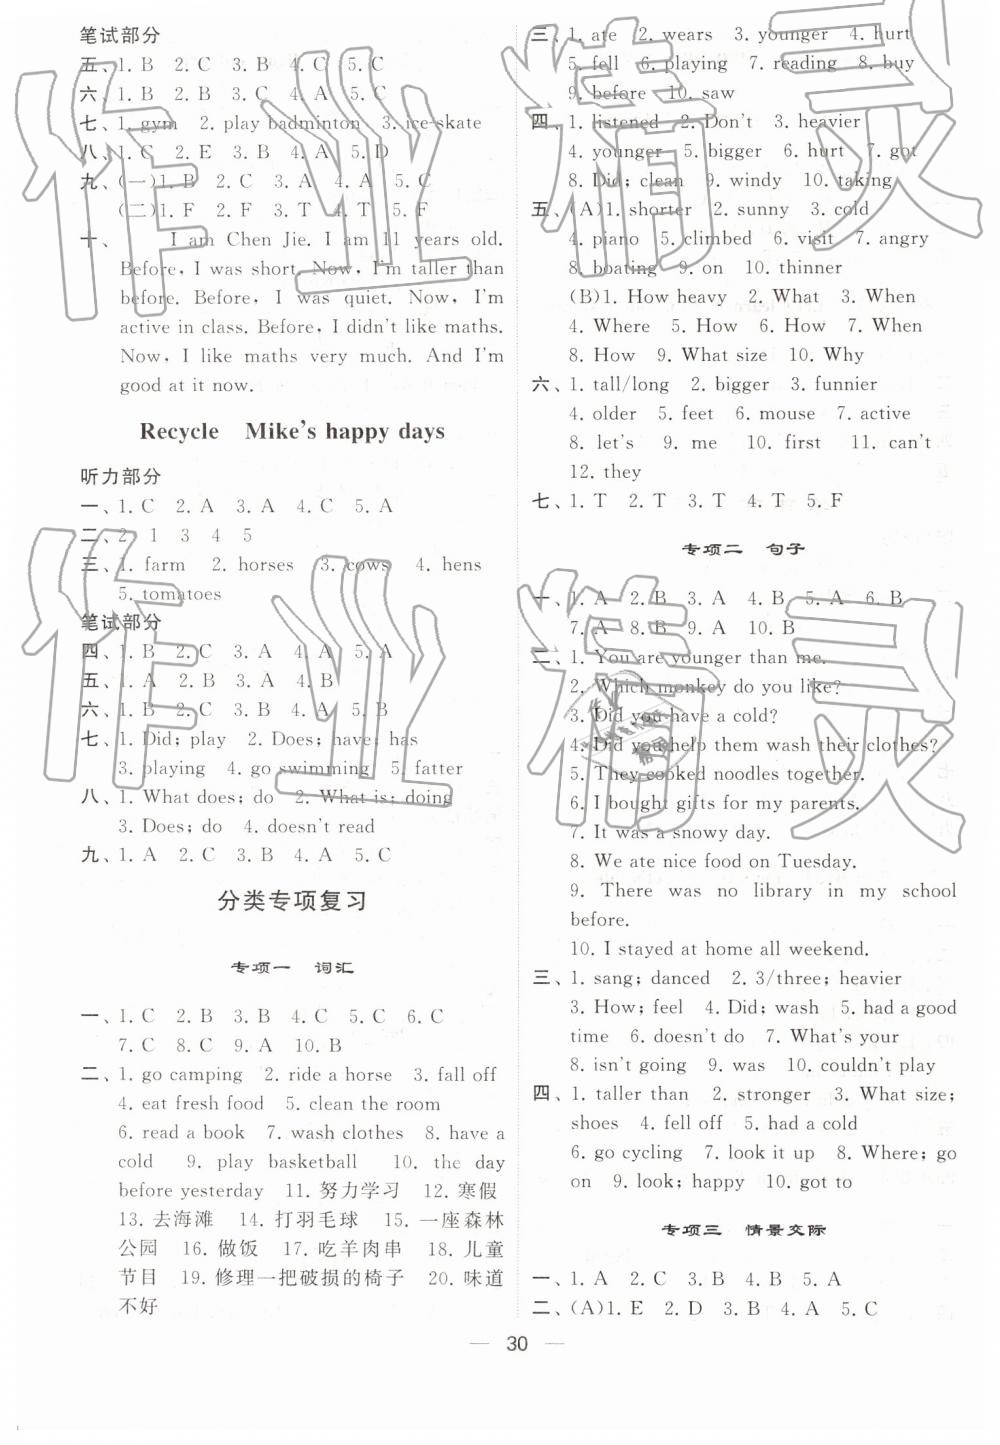 笔试部分
五、1. B 2. C 3. B 4. C 5. C
六、1. B 2. B 3. C 4. A 5. C
七、1. gym 2. play badminton 3. ice-skate
八、1. C 2. E 3. B 4. A 5. D
九、(一)1. B 2. C 3. A 4. A 5. C
(二)1. F 2. F 3. T 4. T 5. F
十、 I am Chen Jie. I am 11 years old.
Before, I was short. Now, I'm taller than
before. Before, I was quiet. Now, I'm
active in class. Before, I didn't like maths.
Now, I like maths very much. And I'm
good at it now.
Recycle Mike's happy days
听力部分
一、1. C 2. A 3. A 4. C 5. A
二、2 1 3 4 5
三、1. farm 2. horses 3. cows 4. hens
5. tomatoes
笔试部分
四、1. B 2. C 3. A 4. A 5. A
五、1. A 2. B 3. A 4. B
六、1. B 2. C 3. B 4. A 5. B
七、1. Did; play 2. Does; have; has
3. playing 4. go swimming 5. fatter
八、1. What does; do 2. What is; doing
3. Does; do 4. doesn't read
九、1. A 2. C 3. B 4. A 5. C
分类专项复习
专项一 词汇
一、1. C 2. B 3. B 4. C 5. C 6. C
7. C 8. C 9. A 10. B
二、1. go camping 2. ride a horse 3. fall off
4. eat fresh food 5. clean the room
6. read a book 7. wash clothes 8. have a
cold 9. play basketball 10. the day
before yesterday 11. 努力学习 12. 寒假
13. 去海滩 14. 打羽毛球 15. 一座森林
公园 16. 做饭 17. 吃羊肉串 18. 儿童
节目 19. 修理一把破损的椅子 20. 味道
不好
三、1. ate 2. wears 3. younger 4. hurt
5. fell 6. playing 7. reading 8. buy
9. before 10. saw
四、1. listened 2. Don't 3. heavier
4. younger 5. bigger 6. hurt 7. got
8. Did; clean 9. windy 10. taking
五、(A)1. shorter 2. sunny 3. cold
4. piano 5. climbed 6. visit 7. angry
8. boating 9. on 10. thinner
(B)1. How heavy 2. What 3. When
4. Where 5. How 6. How 7. When
8. How 9. What size 10. Why
六、1. tall/long 2. bigger 3. funnier
4. older 5. feet 6. mouse 7. active
8. let's 9. me 10. first 11. can't
12. they
七、1. T 2. T 3. T 4. T 5. F
专项二 句子
一、1. A 2. B 3. A 4. B 5. A 6. B
7. A 8. B 9. A 10. B
二、1. You are younger than me.
2. Which monkey do you like?
3. Did you have a cold?
4. Did you help them wash their clothes?
5. They cooked noodles together.
6. I bought gifts for my parents.
7. It was a snowy day.
8. We ate nice food on Tuesday.
9. There was no library in my school
before.
10. I stayed at home all weekend.
三、1. sang; danced 2. 3/three; heavier
3. How; feel 4. Did; wash 5. had a good
time 6. doesn't do 7. What's your
8. isn't going 9. was 10. couldn't play
四、1. taller than 2. stronger 3. What size;
shoes 4. fell off 5. had a cold
6. go cycling 7. look it up 8. Where; go
on 9. look; happy 10. got to
专项三 情景交际
一、1. A 2. C 3. B 4. B 5. A
二、(A)1. E 2. D 3. B 4. A 5. C
— 30 —
作业精灵
作业精灵